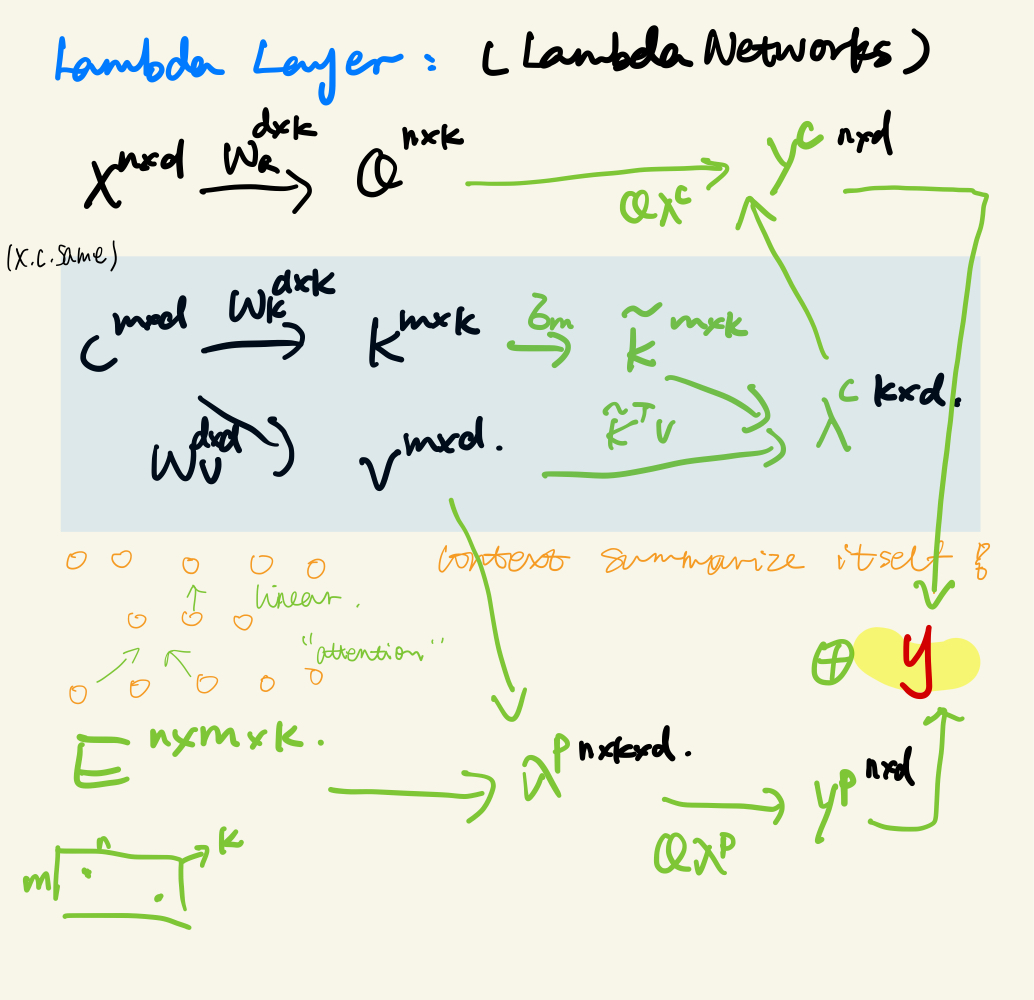 Lambda Layer: (Lambda Networks)
X^{n×d} W_Q^{d×k} Q^{n×k} Qλ^c y^c n×d
(X.C.same)
C^{m×d} W_K^{d×k} K^{m×k} σ_m K̃^{m×k}
λ^c k×d.
W_V^{d×d} V^{m×d}. K̃^T V
context summarize itself !
linear.
"attention"
⊕ y
E^{n×m×k}. λ^p n×k×d. y^p n×d
Qλ^p
n k
m